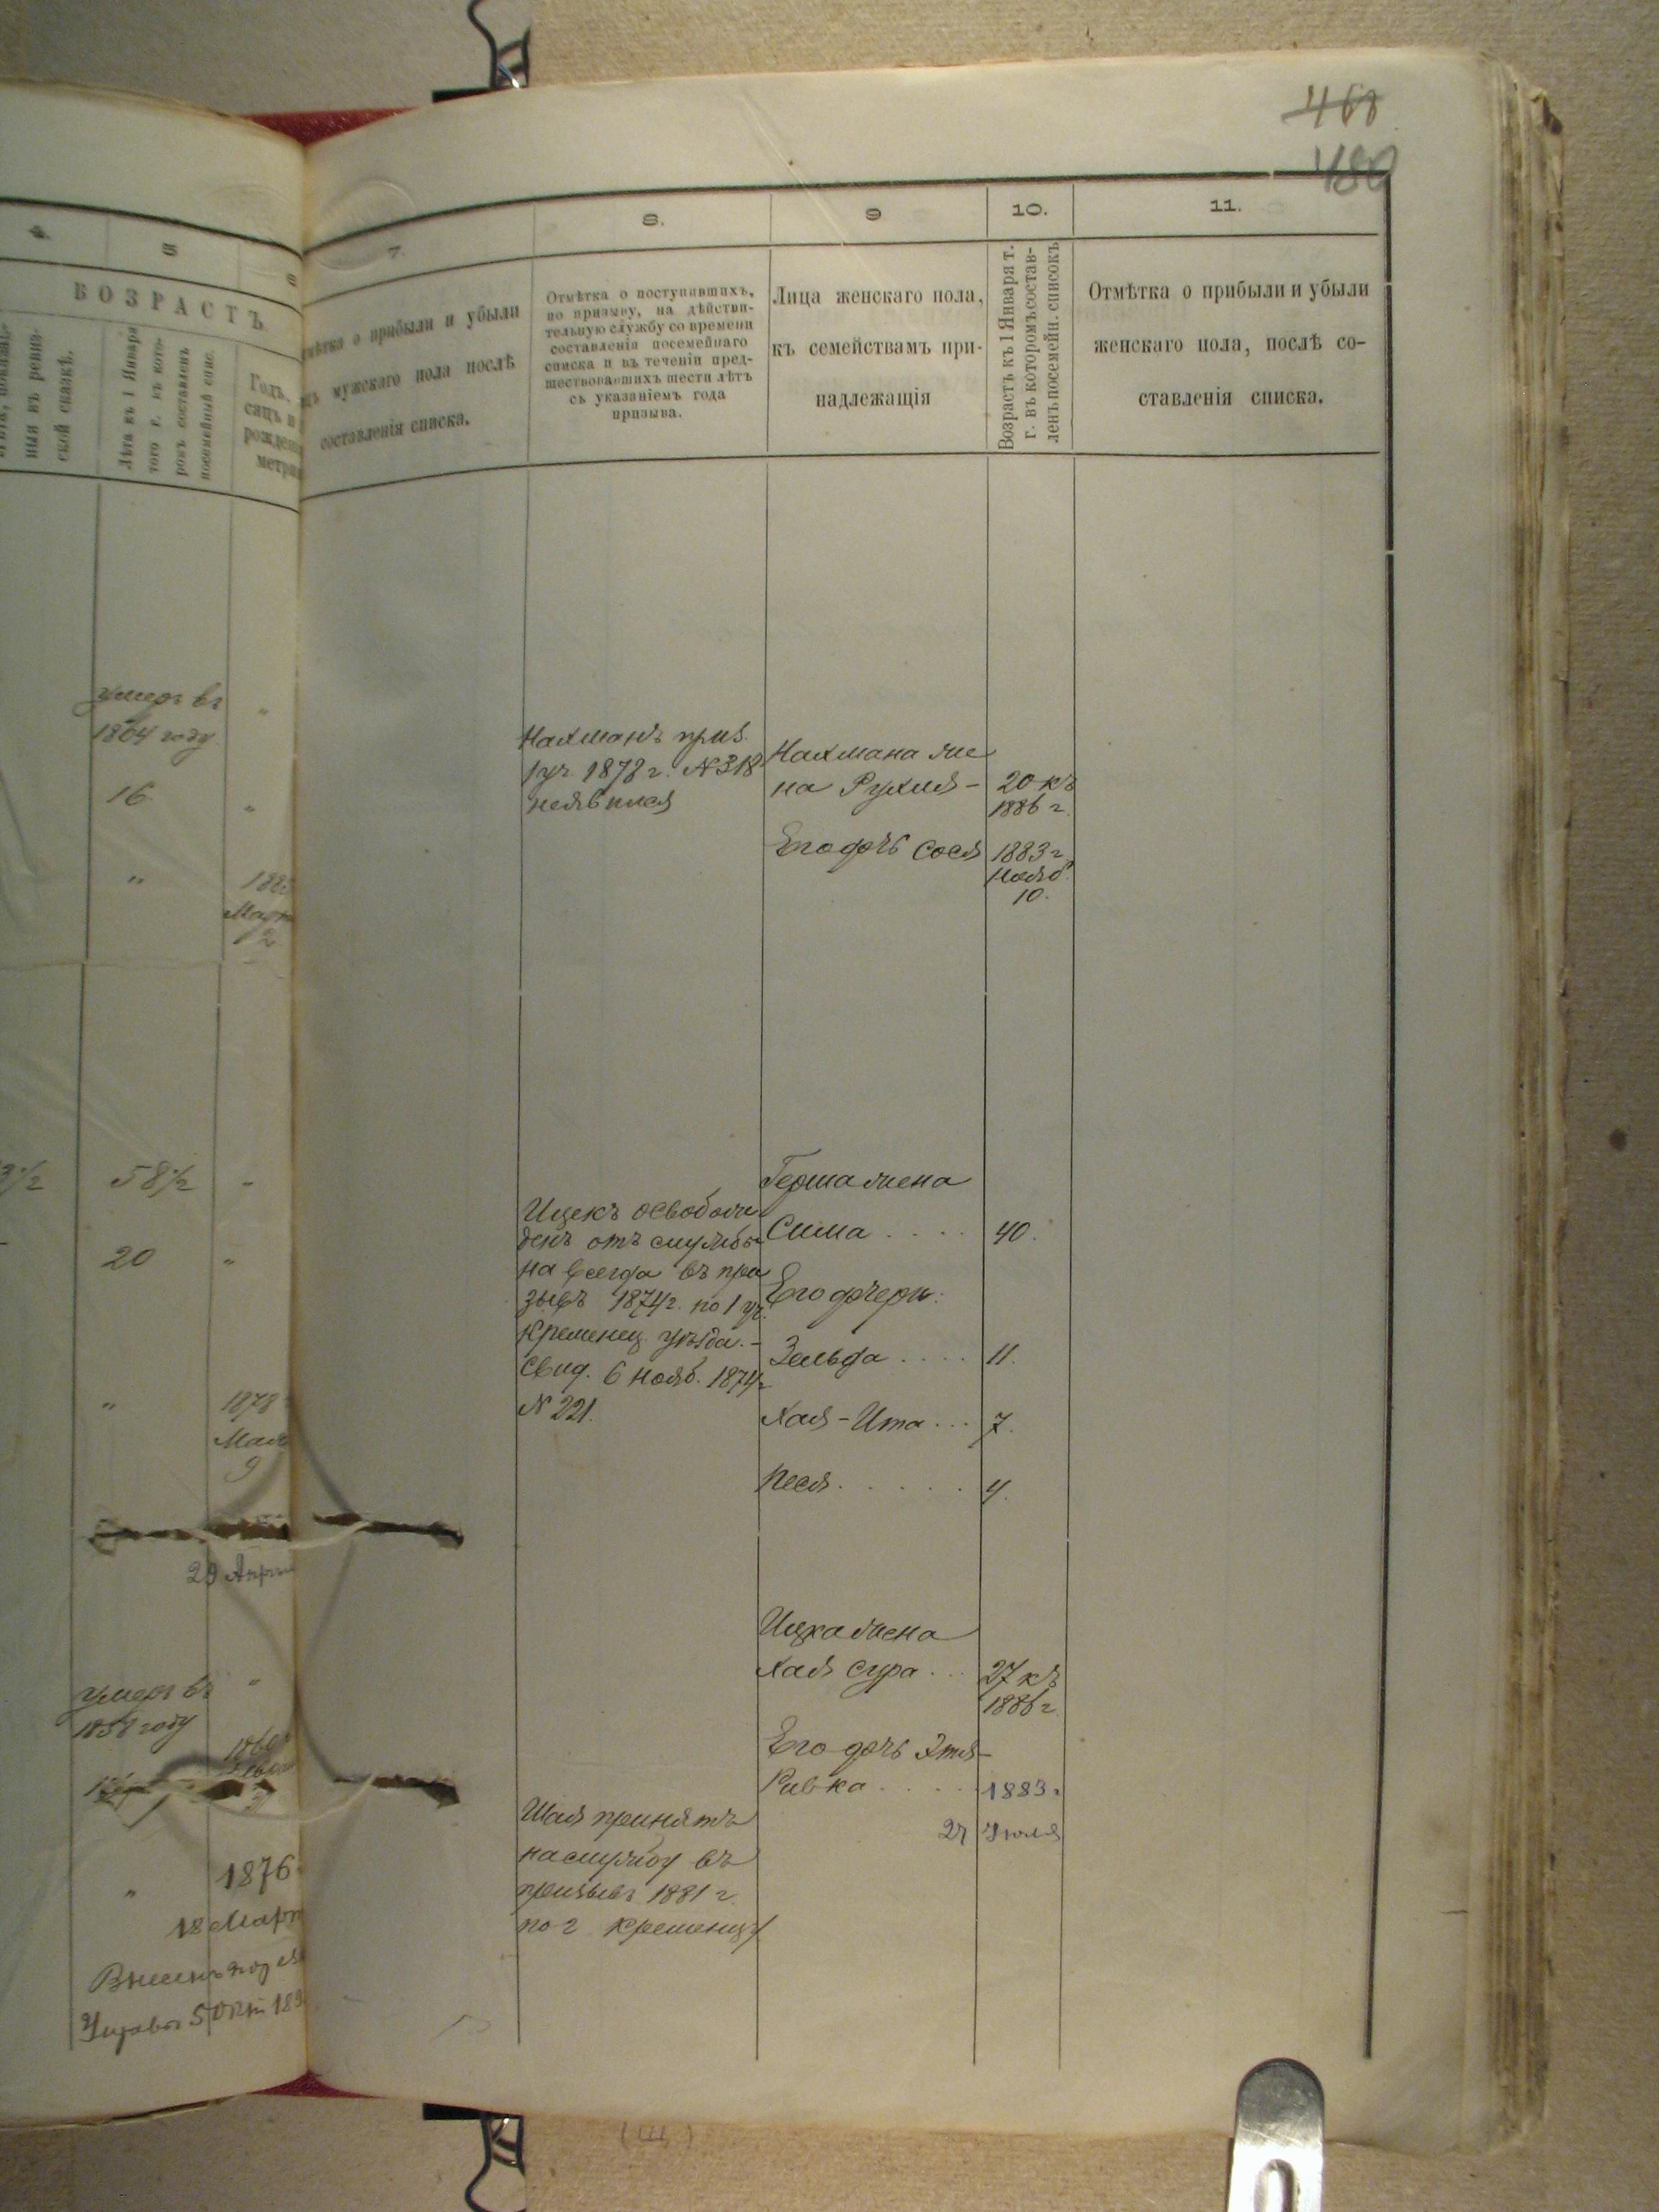 468
480
4. 5 6
ВОЗРАСТЪ.
ныя въ ревиз-
ской сказкѣ.
Лѣта къ 1 Января
того г. въ кото-
ромъ составленъ
посемейный спис.
Годъ,
сяцъ и
рожден
метри
умеръ въ
1864 году
16
1885
Март
2
58 1/2
20
1878
Мая
9
29 Апрѣ
умеръ въ
1858 году
1876
18 Март
7. 8. 9 10. 11.
мѣтка о прибыли и убыли
цъ мужскаго пола послѣ
составленія списка.
Отмѣтка о поступившихъ,
по призыву, на дѣйстви-
тельную службу со времени
составленія посемейнаго
списка и въ теченіи пред-
шествовавшихъ шести лѣтъ
съ указаніемъ года
призыва.
Лица женскаго пола,
къ семействамъ при-
надлежащія
Возрастъ къ 1 Января т.
г. въ которомъ состав-
ленъ посемейн. списокъ
Отмѣтка о прибыли и убыли
женскаго пола, послѣ со-
ставленія списка.
Нахманъ приз.
1 уч. 1878 г. №318
неявился
Нахмана же
на Рухля - 20 къ
1886 г.
Его дочь Сося 1883 г.
Нояб.
10.
Ицекъ освобож
денъ отъ службы
на всегда въ при
зывъ 1874 г. по 1 уч.
Кременец. уѣзда. -
Свид. 6 Нояб. 1874 г.
№ 221.
Герша жена
Сима .... 40.
Его дочери:
Зельда .... 11.
Хая-Ита ... 7.
Песя ..... 4.
Ицка жена
Хая Сура ... 27 къ
1886 г.
Его дочь Этя-
Ривка .... 1883 г
27 Июля
Шая принятъ
на службу въ
призывъ 1881 г.
по г. Кременцу